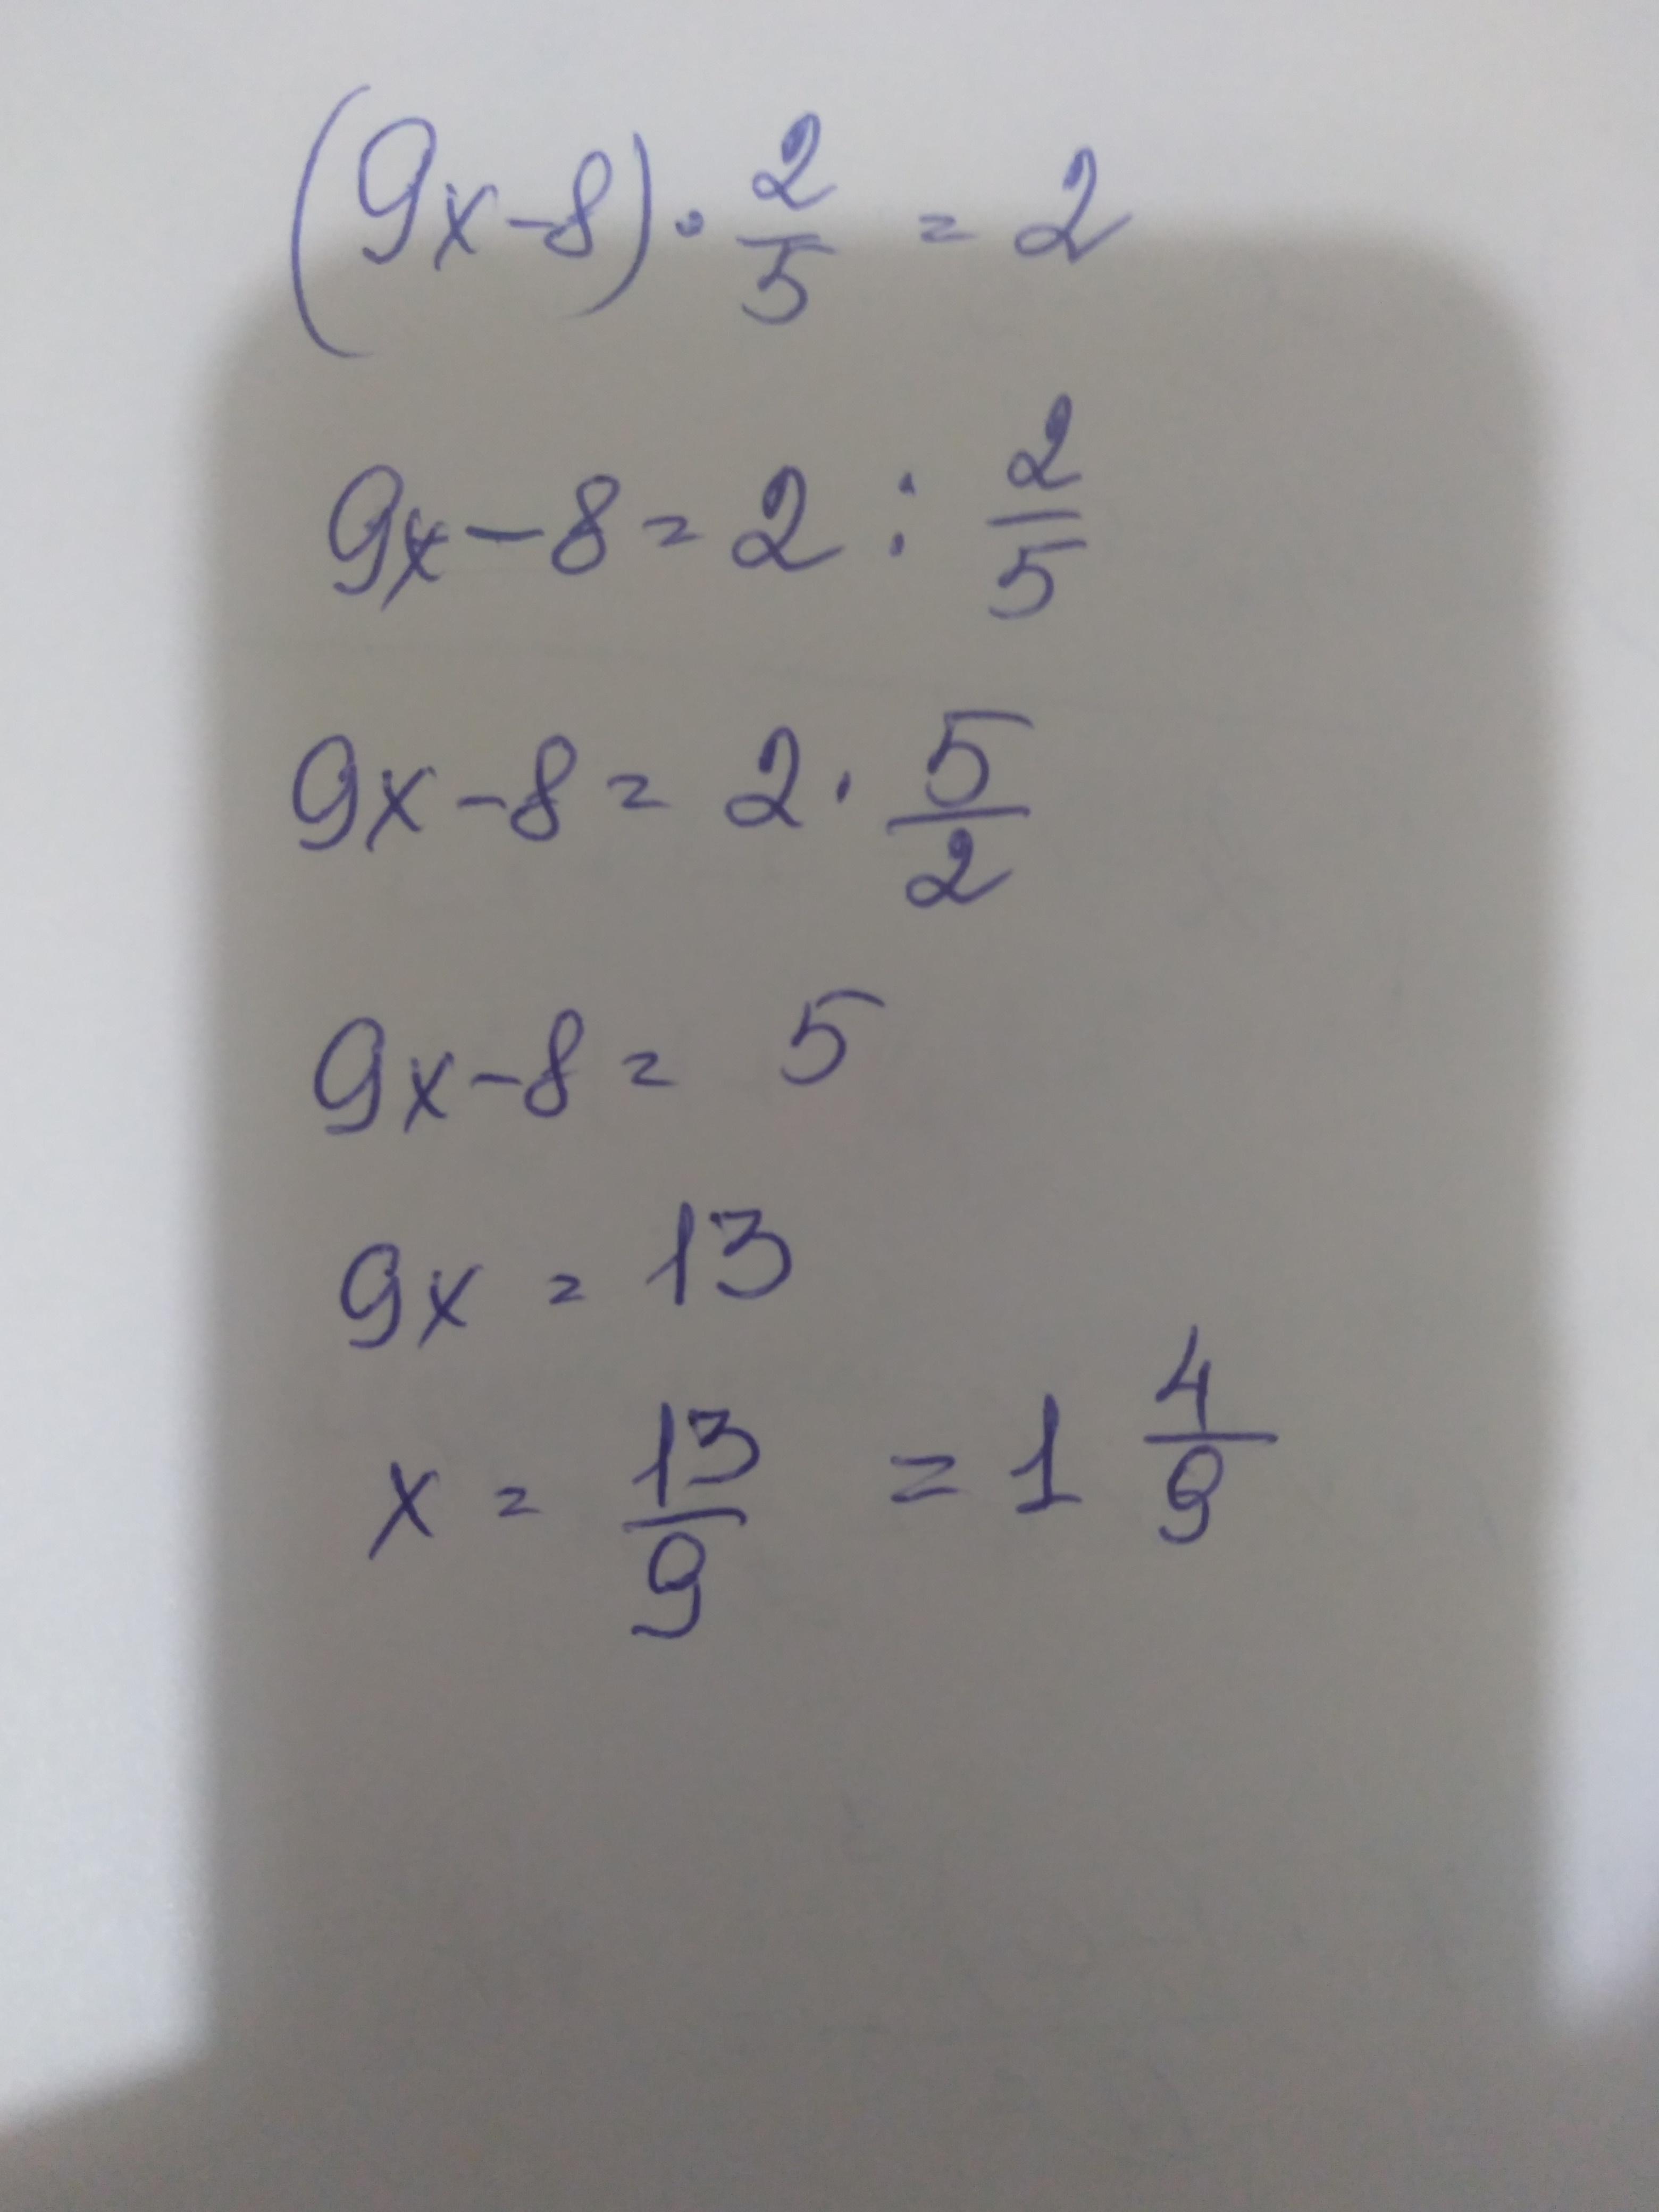 (9x-8)·2/5 = 2
9x-8=2:2/5
9x-8=2·5/2
9x-8=5
9x=13
x=13/9=1 4/9